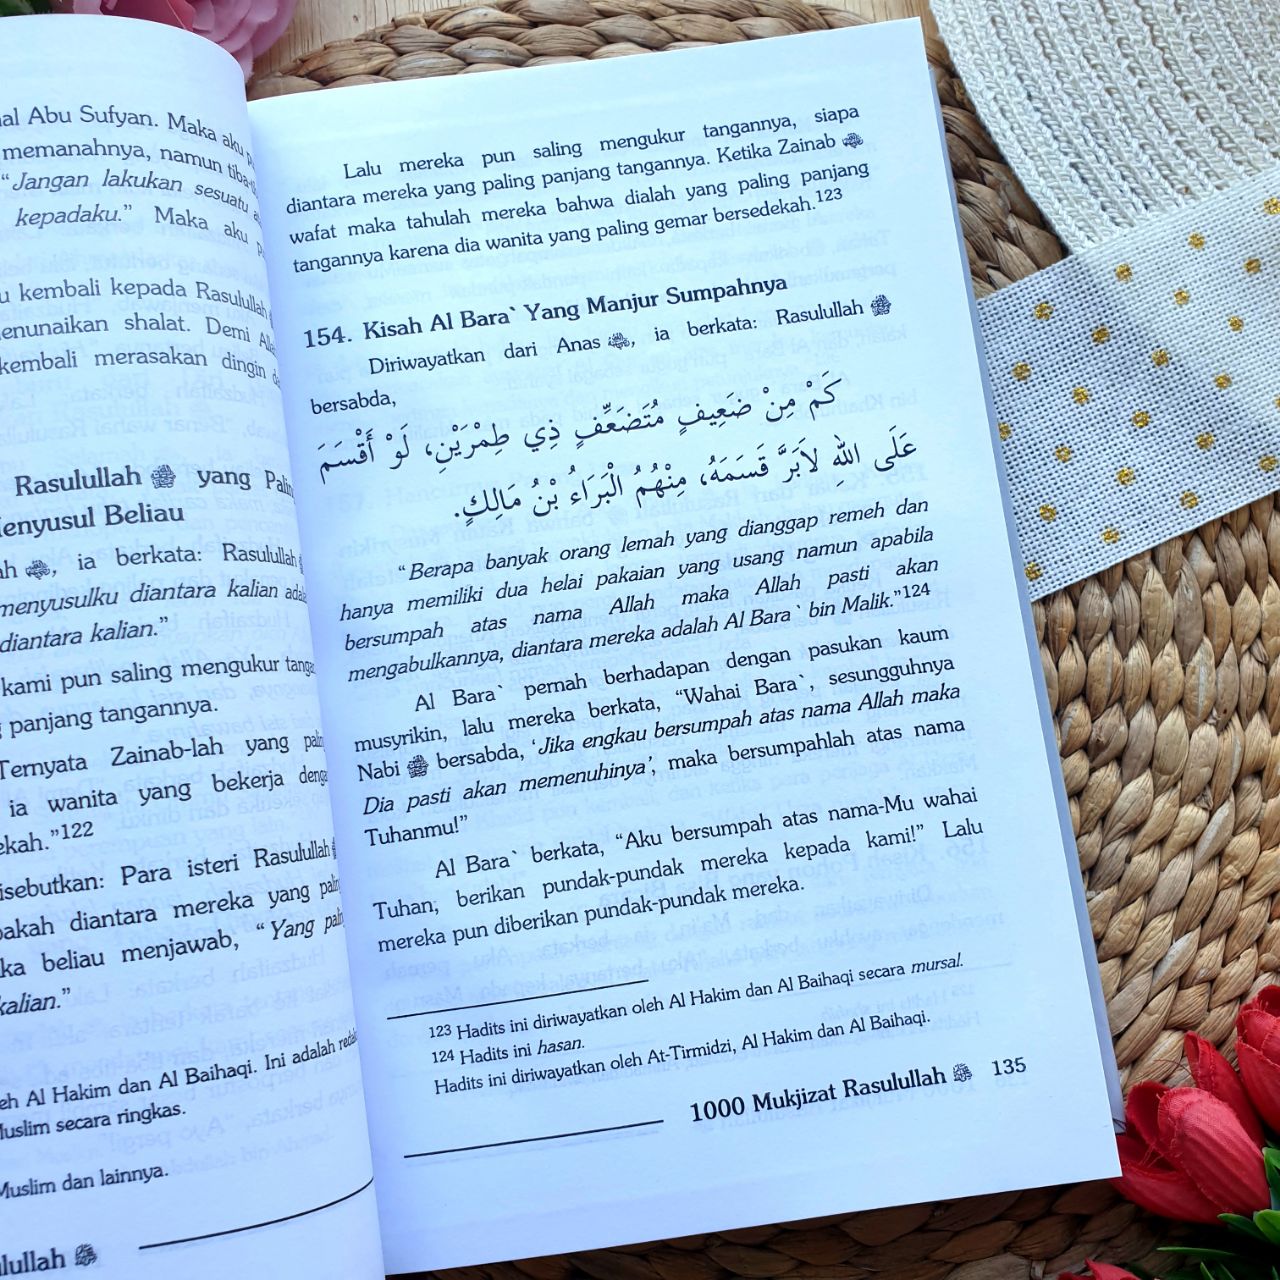 al Abu Sufyan. Maka aku
memanahnya, namun
“Jangan lakukan sesuatu
kepadaku.” Maka aku
kembali kepada Rasulullah
menunaikan shalat. Demi
kembali merasakan dingin
Rasulullah ﷺ yang
Menyusul Beliau
ia berkata: Rasulullah
menyusulku diantara kalian
diantara kalian.”
kami pun saling mengukur
panjang tangannya.
Ternyata Zainab-lah yang
ia wanita yang bekerja
ekah.”122
disebutkan: Para isteri Rasulullah
diantara mereka yang
beliau menjawab, “Yang
kalian.”
Al Hakim dan Al Baihaqi. Ini adalah
Muslim secara ringkas.
Muslim dan lainnya.
Lalu mereka pun saling mengukur tangannya, siapa
diantara mereka yang paling panjang tangannya. Ketika Zainab
wafat maka tahulah mereka bahwa dialah yang paling panjang
tangannya karena dia wanita yang paling gemar bersedekah.123
154. Kisah Al Bara` Yang Manjur Sumpahnya
Diriwayatkan dari Anas, ia berkata: Rasulullah ﷺ
bersabda,
كَمْ مِنْ ضَعِيفٍ مُتَضَعِّفٍ ذِي طِمْرَيْنِ، لَوْ أَقْسَمَ
عَلَى الله لاَبَرَّ قَسَمَهُ، مِنْهُمُ الْبَرَاءُ بْنُ مَالِكٍ.
“Berapa banyak orang lemah yang dianggap remeh dan
hanya memiliki dua helai pakaian yang usang namun apabila
bersumpah atas nama Allah maka Allah pasti akan
mengabulkannya, diantara mereka adalah Al Bara` bin Malik.”124
Al Bara` pernah berhadapan dengan pasukan kaum
musyrikin, lalu mereka berkata, “Wahai Bara`, sesungguhnya
Nabi ﷺ bersabda, ‘Jika engkau bersumpah atas nama Allah maka
Dia pasti akan memenuhinya’, maka bersumpahlah atas nama
Tuhanmu!”
Al Bara` berkata, “Aku bersumpah atas nama-Mu wahai
Tuhan, berikan pundak-pundak mereka kepada kami!” Lalu
mereka pun diberikan pundak-pundak mereka.
123 Hadits ini diriwayatkan oleh Al Hakim dan Al Baihaqi secara mursal.
124 Hadits ini hasan.
Hadits ini diriwayatkan oleh At-Tirmidzi, Al Hakim dan Al Baihaqi.
1000 Mukjizat Rasulullah ﷺ 135